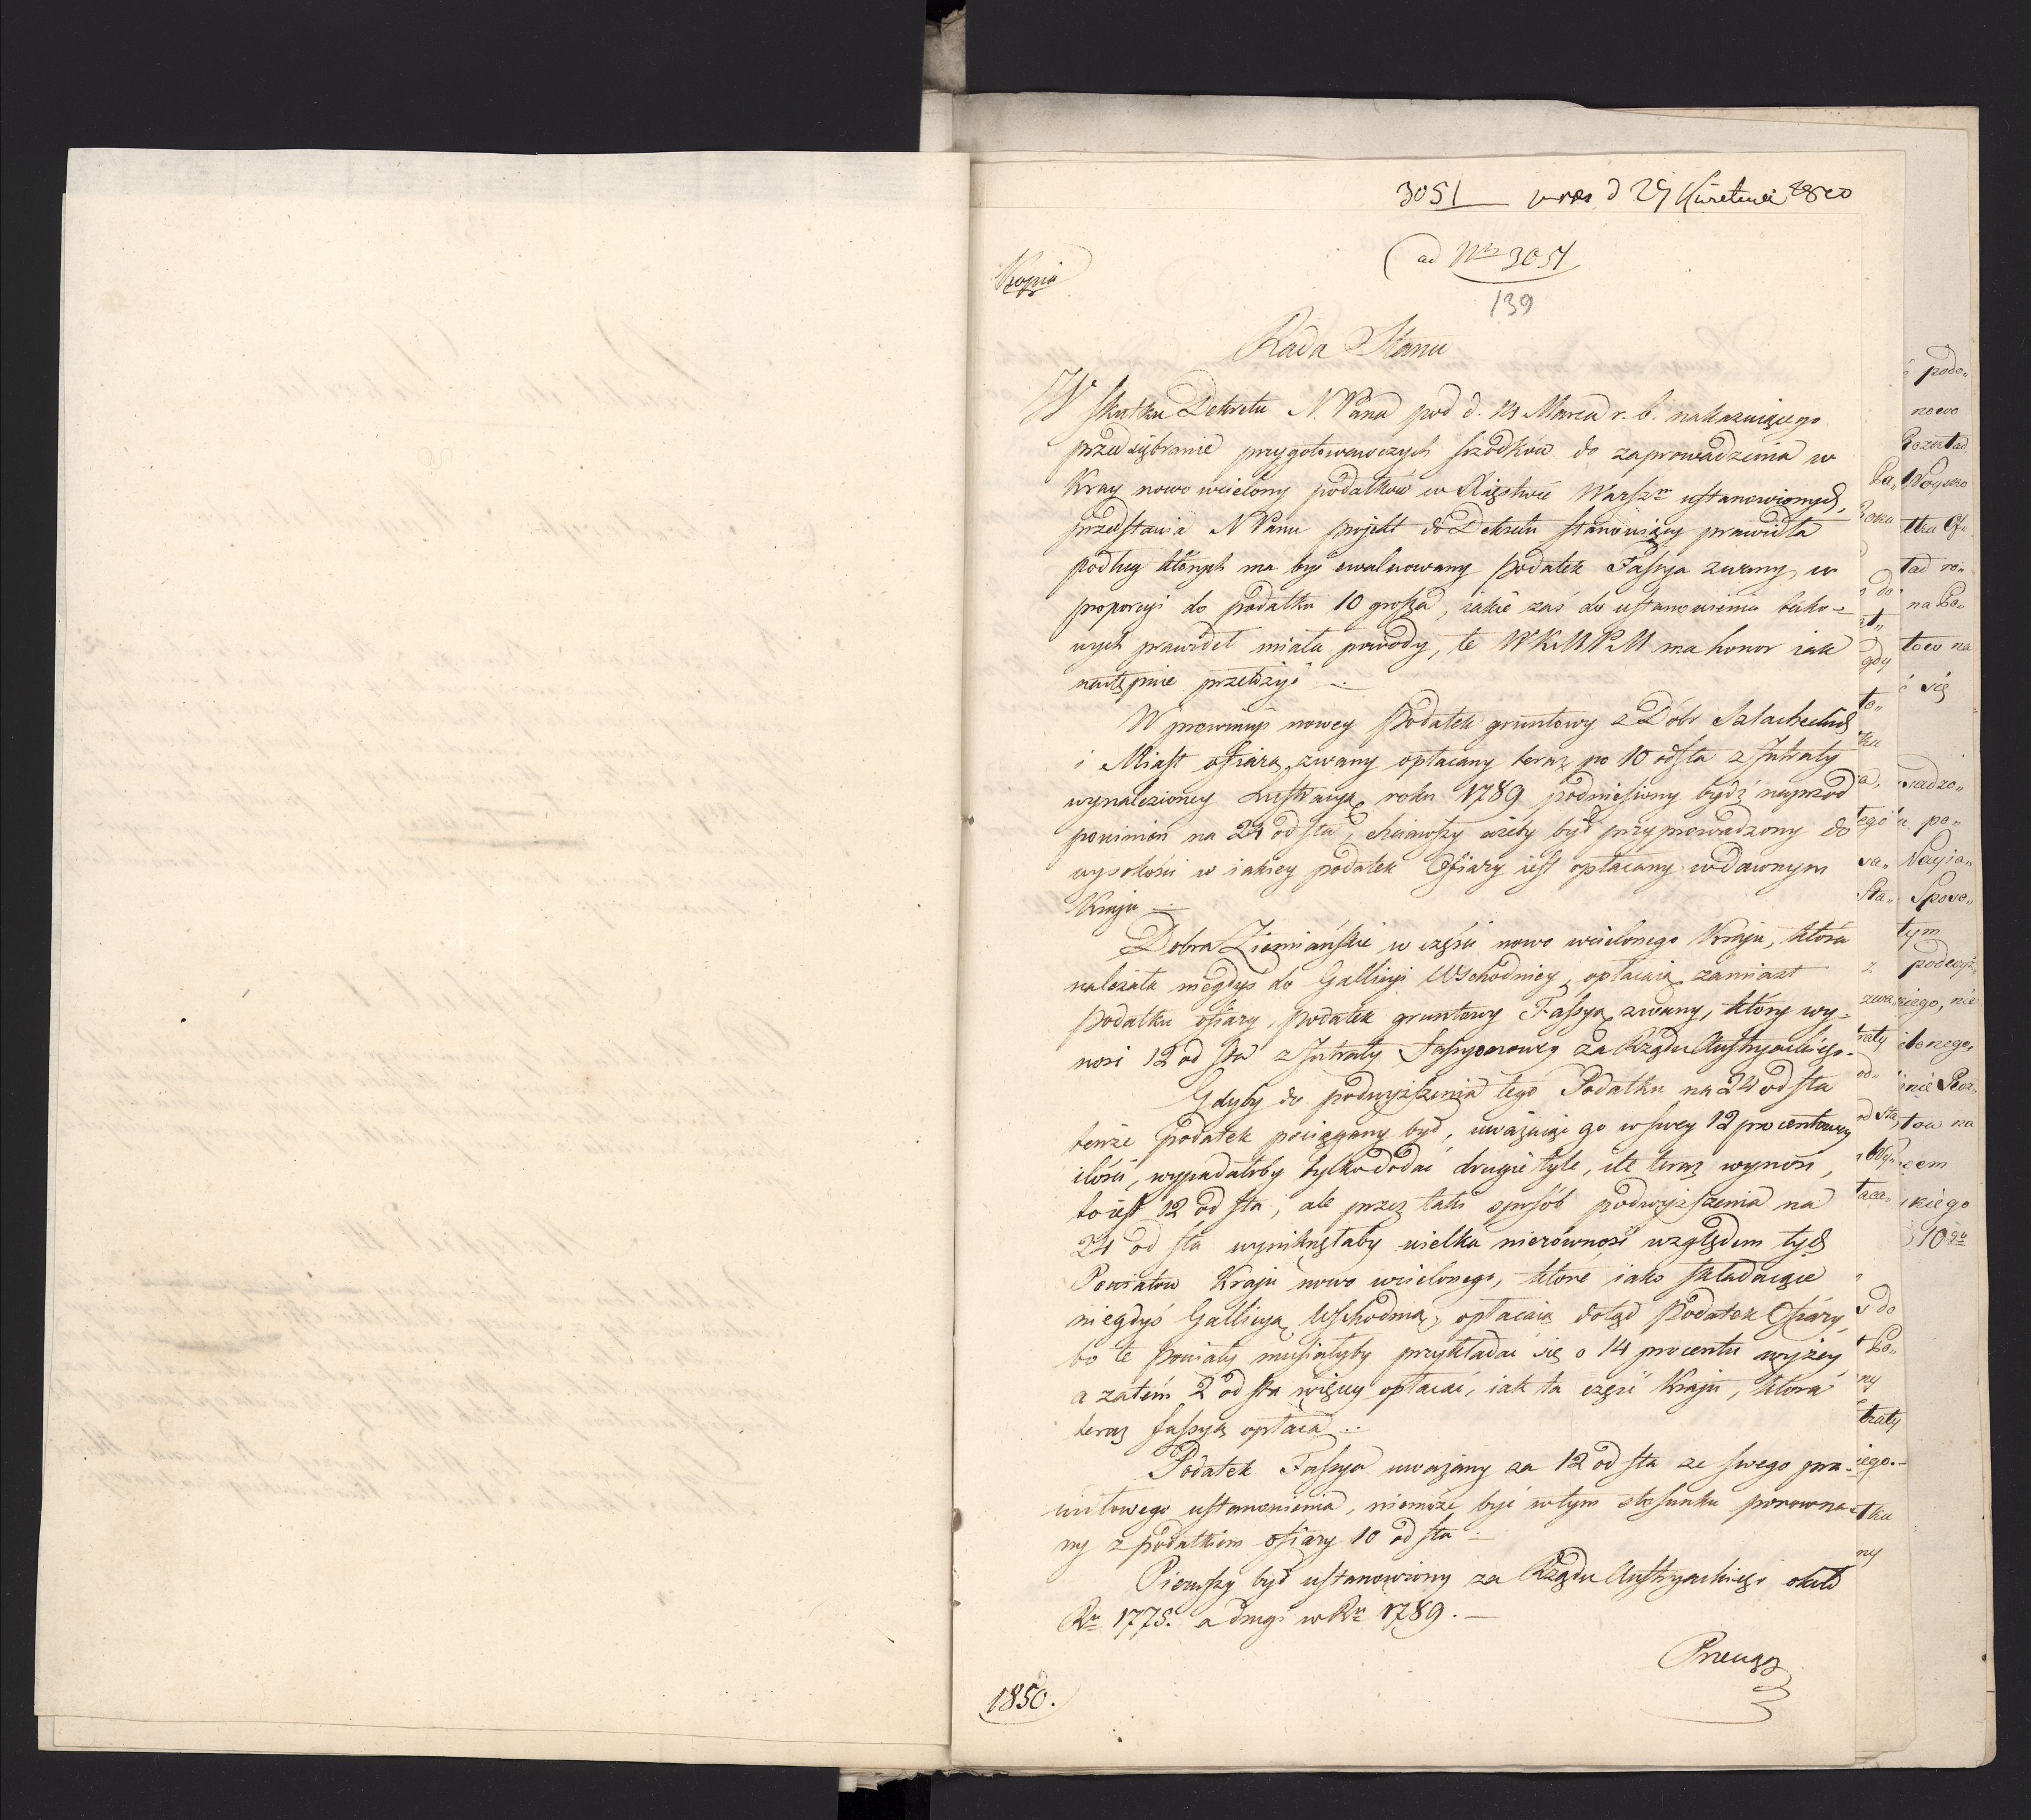 3051 d 29 Kwietnia 1810
ad Nro 3051
139
Kopia
Rada Stanu
W skutku Dekretu N. Pana pod d. Marca r. b. nakazuiącego
przedsiębranie przygotowawczych srzodków do zaprowadzenia w
Kray nowo wcielony podatków w Xięstwie Warszm ustanowionych,
przedstawia N Panu projekt do Dekretu stanowiący prawidła
podług których ma być ewaluowany podatek Fassya zwany, w
proporcyi do podatku 10 grosza, iakie zaś do ustanowienia tako-
wych prawideł miała powody, te WKMPM ma honor iak
następnie przełożyć
W prowincyi nowey Podatek gruntowy z Dóbr Szlacheckich
i Miast ofiarą zwany opłacany teraz po 10 od sta z Intraty
wynalezioney Lustracyą roku 1789 podniesiony bydź naprzod
powinien na 24 od sta, chciawszy ażeby był przyprowadzony do
wysokości w iakiey podatek Ofiary iest opłacany w dawnym
Kraju
Dobra Ziemiańskie w części nowo wcielonego Kraju, która
należała niegdyś do Gallicyi Wschodniey, opłacaią zamiast
podatku ofiary, podatek gruntowy Fassyą zwany, który wy-
nosi 12 od sta z Intraty Fassyonowey za Rządu Austryackiego.
Gdyby do podwyższenia tego Podatku na 24 od sta
tenże podatek pociągany był, uważaiąc go w swey 12 procentowey
ilości, wypadałoby tylko dodać drugie tyle, ile teraz wynosi,
to iest 12 od sta; ale przez taki sposób podwyższenia na
24 od sta wyniknęłaby wielka nierówność względem tych
Powiatow Kraju nowo wcielonego, które iako składaiące
niegdyś Gallicyą Wschodnią, opłacaią dotąd Podatek Ofiary,
bo te powiaty musiałyby przykładać się o 14 procentu wyżey
a zatém 2 od sta więcey opłacać, iak ta część Kraju, która
teraz fassyą opłaca
Podatek Fassya uważany za 12 od sta ze swego pra-
widłowego ustanowienia, niemoże być w tym stosunku porowna-
ny z podatkiem ofiary 10 od sta
Pierwszy był ustanowiony za Rządu Austryackiego około
Ru 1775. a drugi w Ru 1789.
1850.